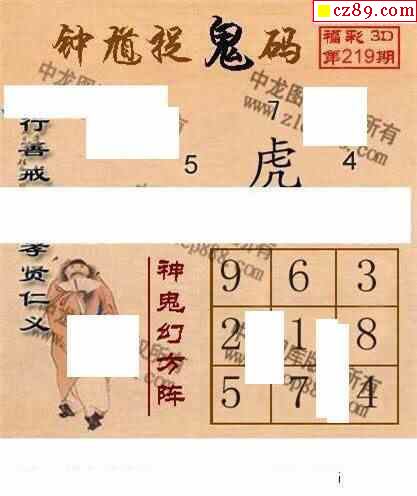 cz89.com
钟馗捉鬼码
福彩3D
第219期
7
虎
5
4
行善戒
孝贤仁义
神鬼幻方阵
9 6 3
2 1 8
5 7 4
i